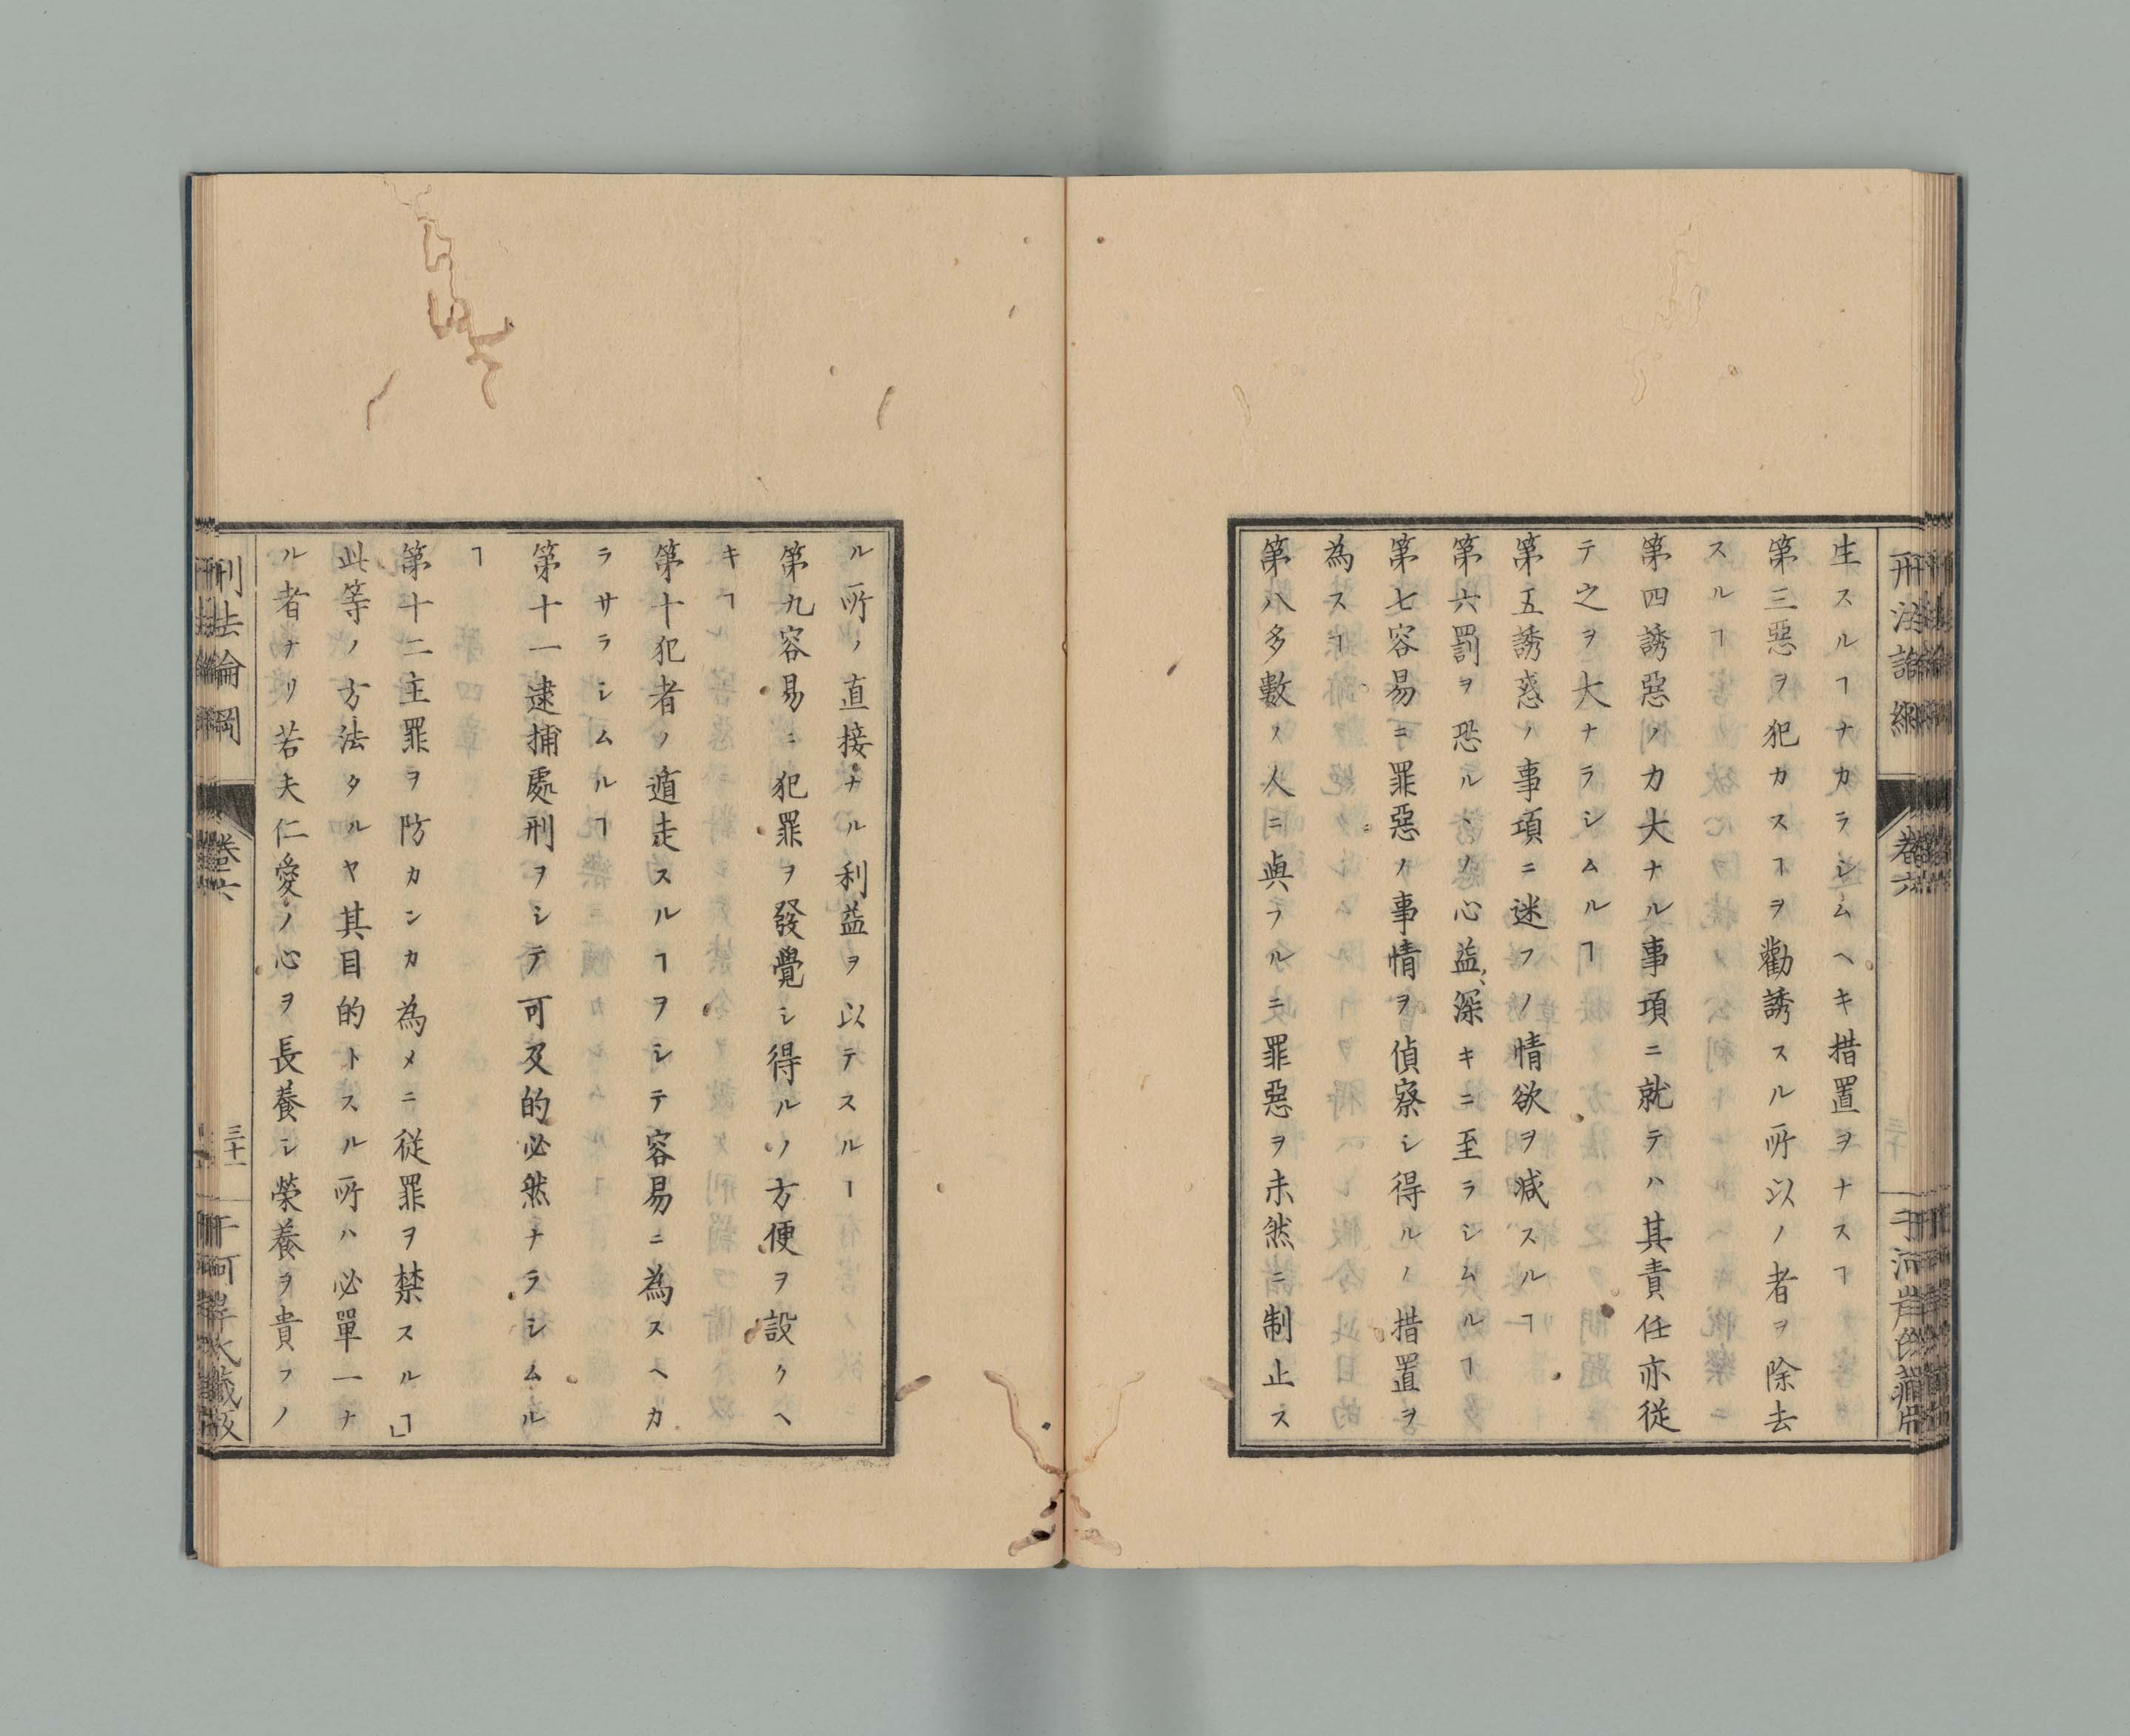 生スルヿナカラシムヘキ措置ヲナスヿ
第三惡ヲ犯カスヿヲ勸誘スル所以ノ者ヲ除去
スルヿ
第四誘惡ノ力大ナル事項ニ就テハ其責任亦従
テ之ヲ大ナラシムルヿ
第五誘惑ノ事項ニ迷フノ情欲ヲ減スルヿ
第六罰ヲ恐ルヽノ心益〻深キニ至ラシムルヿ
第七容易ニ罪惡ノ事情ヲ偵察シ得ルノ措置ヲ
為スヿ
第八多數ノ人ニ與フルニ罪惡ヲ未然ニ制止ス
刑法論綱
卷六
三十一
ル所ノ直接ナル利益ヲ以テスルヿ
第九容易ニ犯罪ヲ發覺シ得ルノ方便ヲ設クヘ
キヿ
第十犯者ノ遁走スルヿヲシテ容易ニ為スヘカ
ラサラシムルヿ
第十一逮捕處刑ヲシテ可及的必然ナラシムル
ヿ
第十二主罪ヲ防カンカ為メニ従罪ヲ禁スルヿ」
此等ノ方法タルヤ其目的トスル所ハ必單一ナ
ル者ナリ若夫仁愛ノ心ヲ長養シ榮養ヲ貴フノ
刑法論綱
卷六